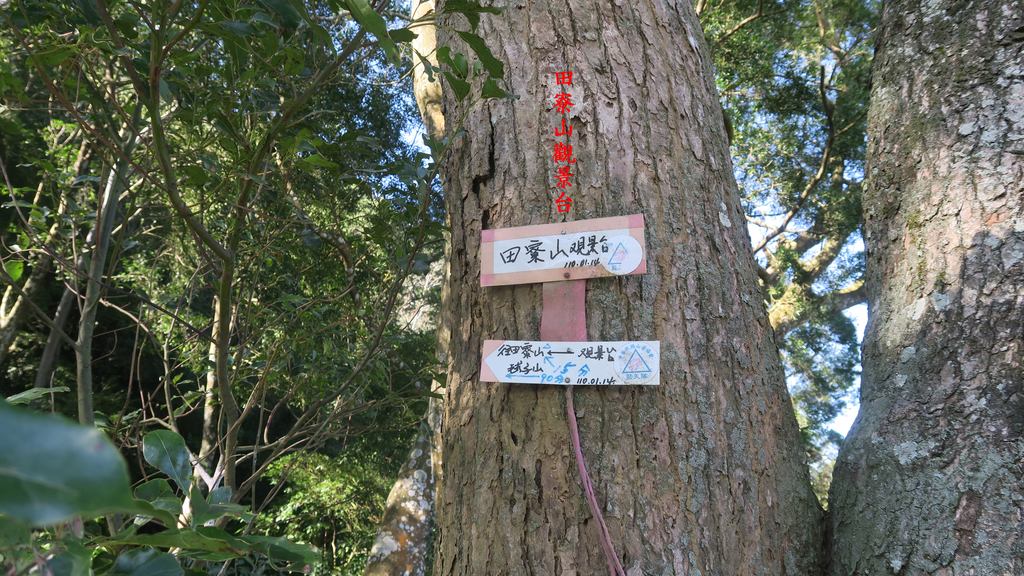 田寮山觀景台
田寮山观景台
110.01.14
往田寮山 ↔ 观景台
桃子山 15分
90分 110.01.14